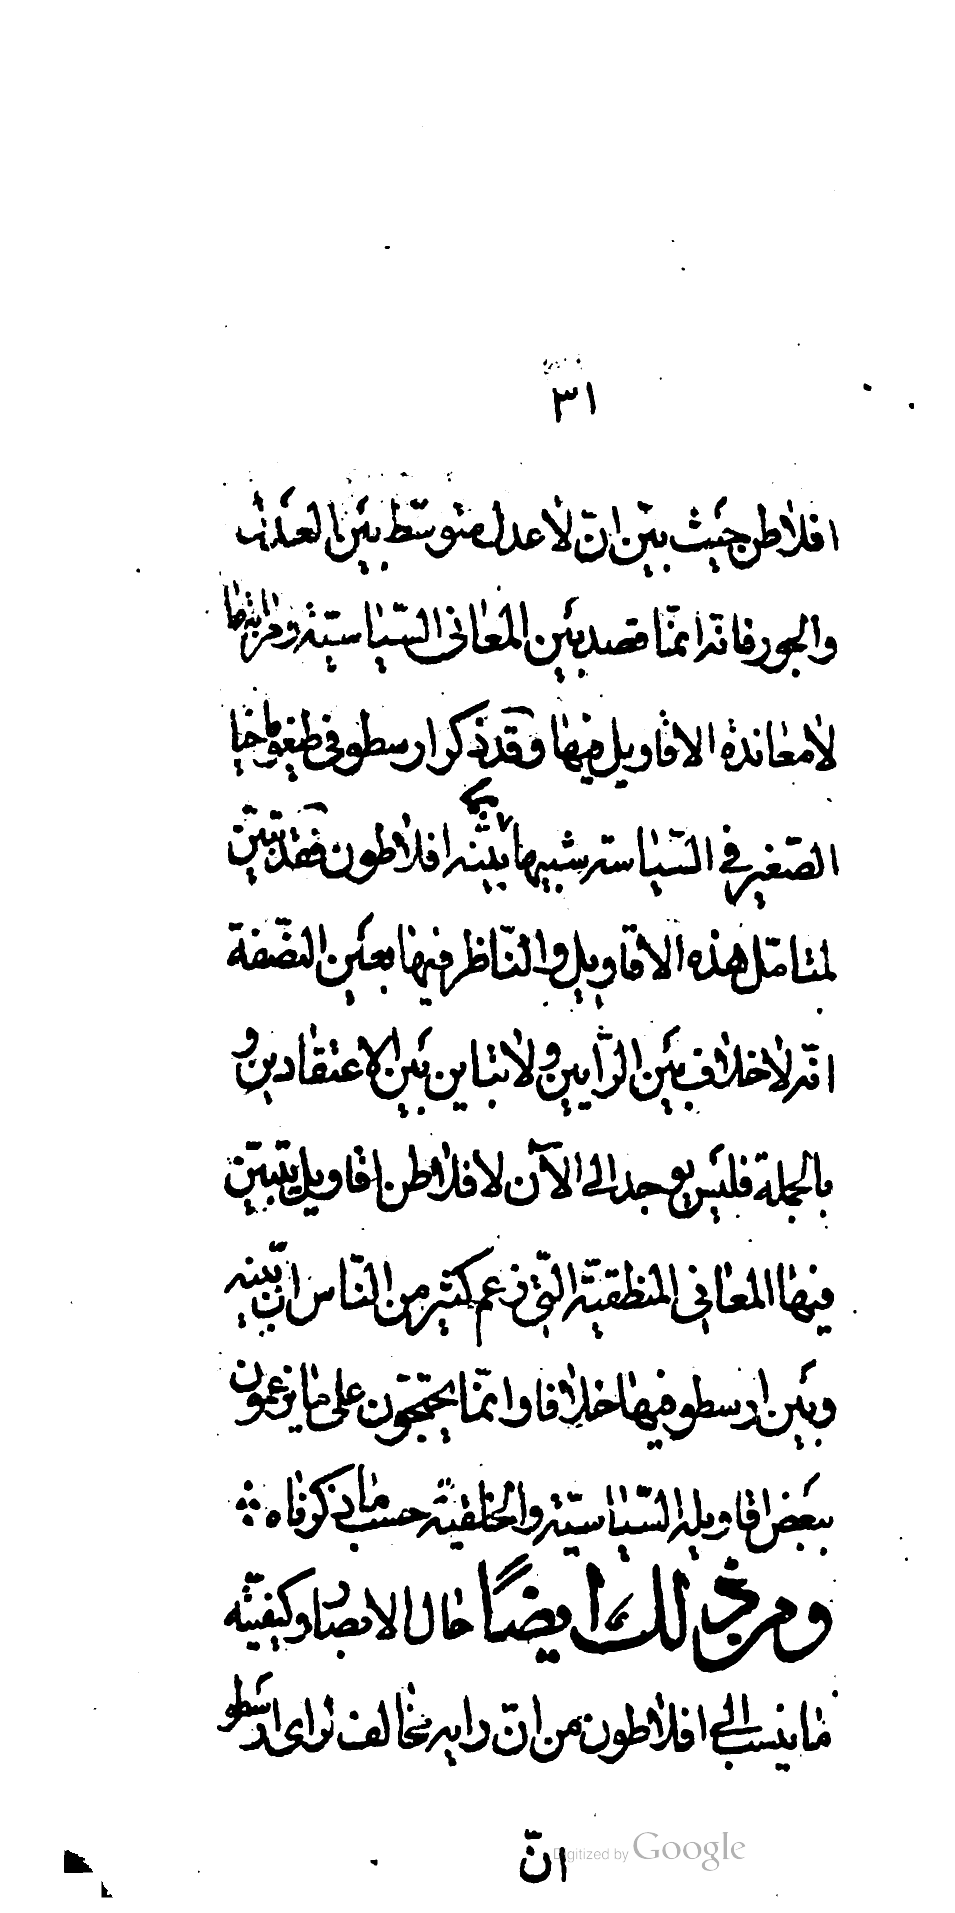 ٣١
افلاطن حيث بيّن انّ لا عدل متوسّط بين العدل
والجور فانّه انمّا قصد بين المعانى السّياسيّة ومراتبها
لا معاندة الاقاويل فيها وقد ذكر ارسطو في طيغوماخيا
الصّغير في السّياسة شبيها بيّنه افلاطون فقد تبيّن
لمتامّل هذه الاقاويل والنّاظر فيها بعين النصّفة
انّه لا خلاف بين الرّأيين ولا تباين بين الاعتقادين و
بالجملة فليس يوجد الى الآن لافلاطن اقاويل يتبيّن
فيها المعانى المنطقيّة الّتى زعم كثير من النّاس انّ بينه
وبين ارسطو فيها خلافا وانمّا يحتجّون على ما يزعمون
ببعض اقاويله السّياسيّة والخلقيّة حسب ما ذكرناه
ومن ذلك ايضًا حال الابصار وكيفيّته
ما ينسب الى افلاطون من انّ رايه مخالف لراى ارسطو
انّ
Digitized by Google